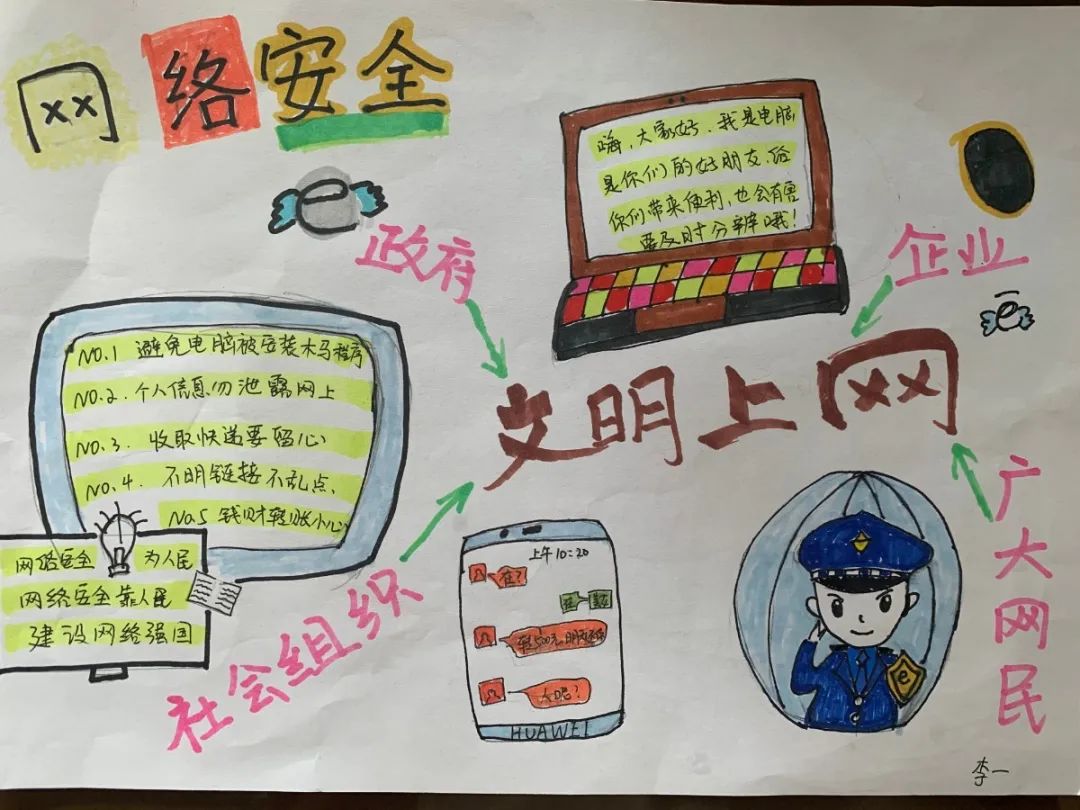 网络安全
嗨,大家好.我是电脑
是你们的好朋友.给
你们带来便利,也会有害
要及时分辨哦!
e
政府
企业
e
文明上网
NO.1 避免电脑被安装木马程序
NO.2. 个人信息勿池露网上
NO.3. 收取快递要留心
NO.4. 不明链接不乱点.
NO.5 钱财转账小心
网络安全 为人民
网络安全靠人民
建设网络强国
社会组织
广大网民
上午10:20
在?
人呢?
HUAWEI
e
李一